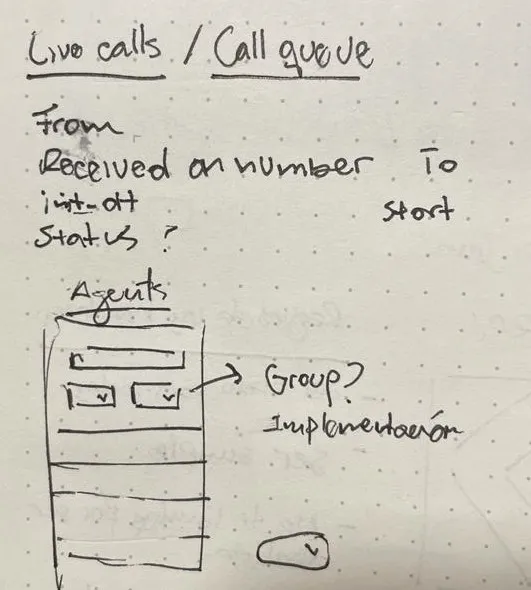 Live calls / Call queue
From
Received on number To
start
Status ?
Agents
Group?
Implementación